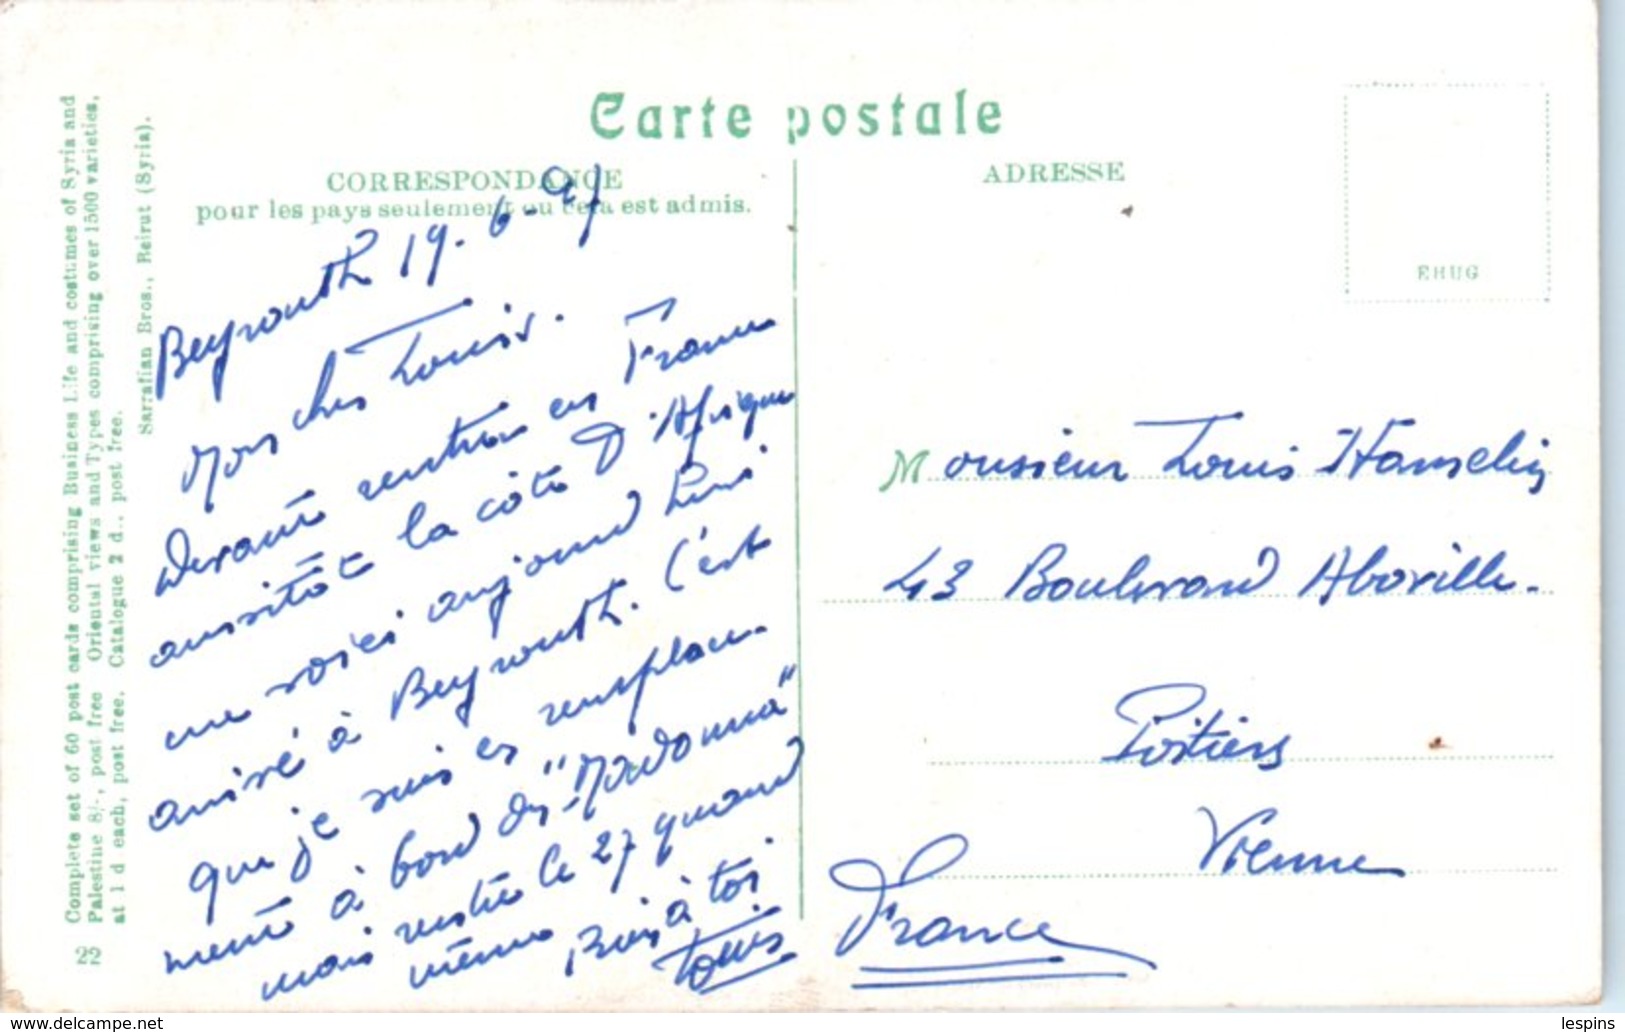 Carte postale
CORRESPONDANCE
pour les pays seulement ou cela est admis.
ADRESSE
EHUG
Beyrouth 19-6-
Mon cher Louis.
Devant rentrer en France
aussitôt la côte d'Afrique
me voici aujourd'hui
arrivé à Beyrouth. C'est
que je suis en remplace-
ment à bord du "Madonna"
mais rentre le 27 quand
même Bien à toi
Louis
Monsieur Louis Hamelin
43 Boulevard Aboville.
Poitiers
Vienne
France
Complete set of 60 post cards comprising Business Life and costumes of Syria and
Palestine 8/-, post free Oriental views and Types comprising over 1500 varieties,
at 1 d each, post free. Catalogue 2 d., post free.
Sarrafian Bros., Beirut (Syria).
22
www.delcampe.net
lespins